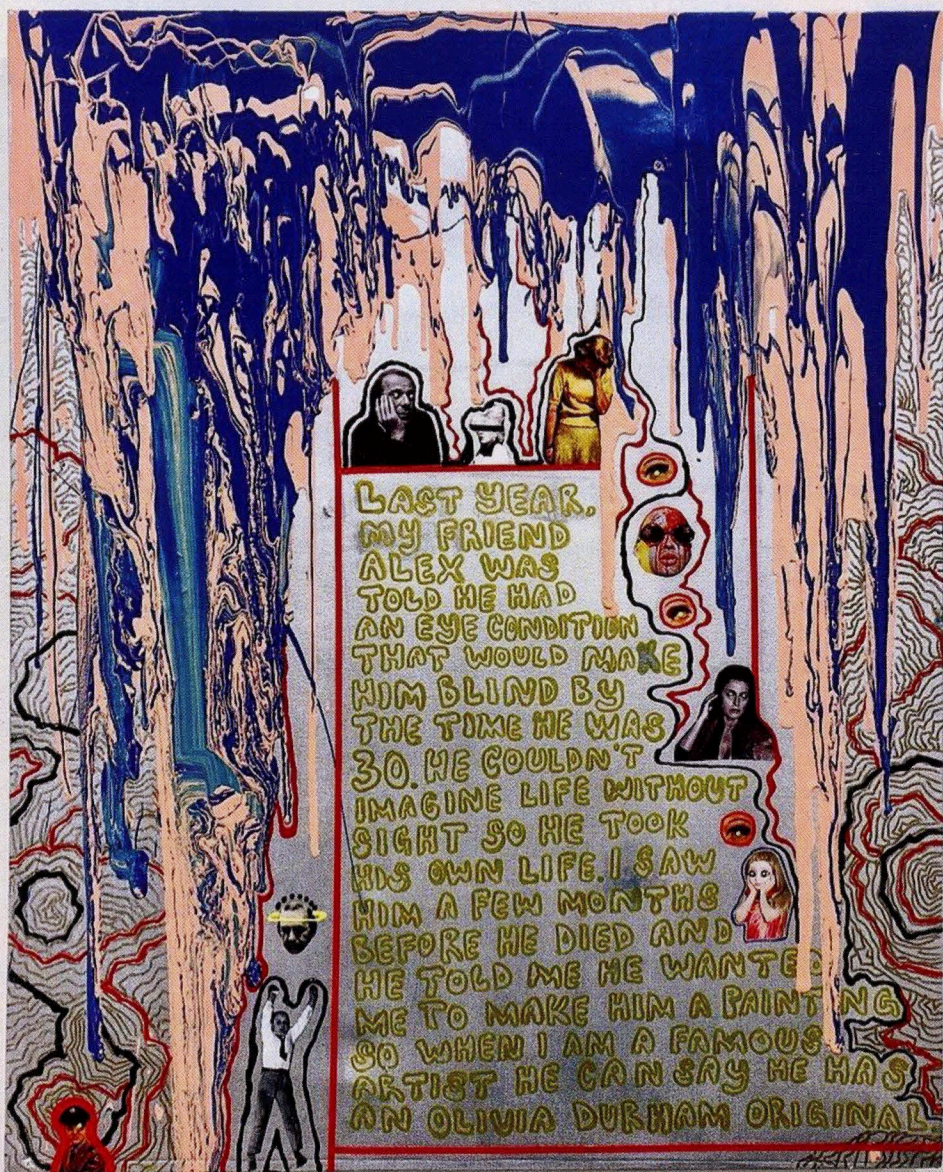 LAST YEAR,
MY FRIEND
ALEX WAS
TOLD HE HAD
AN EYE CONDITION
THAT WOULD MAKE
HIM BLIND BY
THE TIME HE WAS
30. HE COULDN'T
IMAGINE LIFE WITHOUT
SIGHT SO HE TOOK
HIS OWN LIFE. I SAW
HIM A FEW MONTHS
BEFORE HE DIED AND
HE TOLD ME HE WANTED
ME TO MAKE HIM A PAINTING
SO WHEN I AM A FAMOUS
ARTIST HE CAN SAY HE HAS
AN OLIVIA DURHAM ORIGINAL